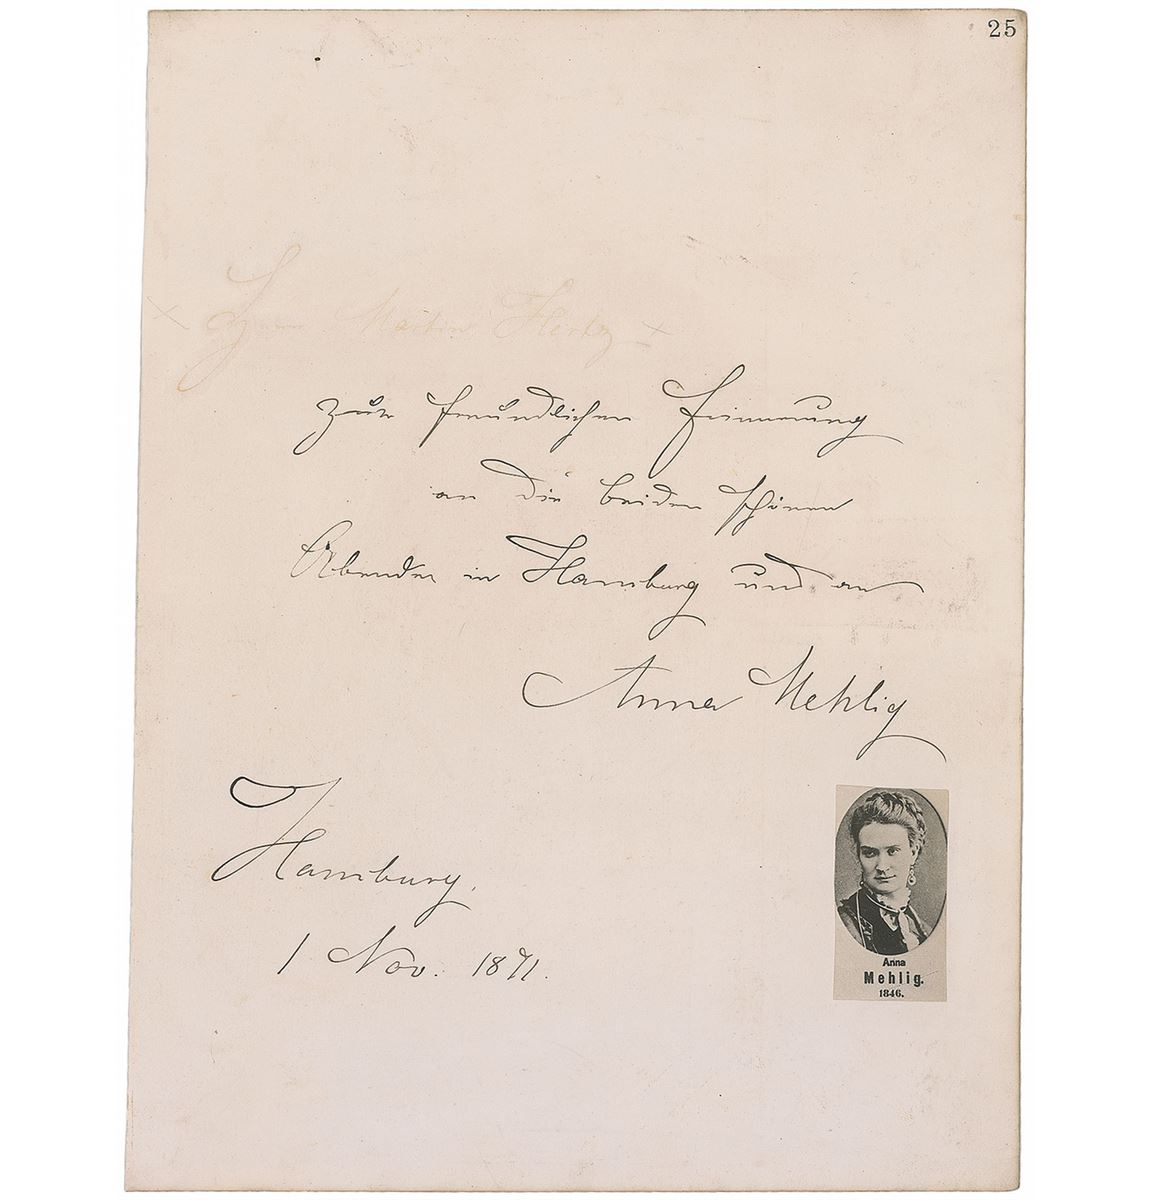 25
× Herrn Martin Hertz ×
zur freundlichen Erinnerung
an die beiden schönen
Abende in Hamburg und an
Anna Mehlig
Hamburg.
1 Nov. 1871.
Anna
Mehlig.
1846.